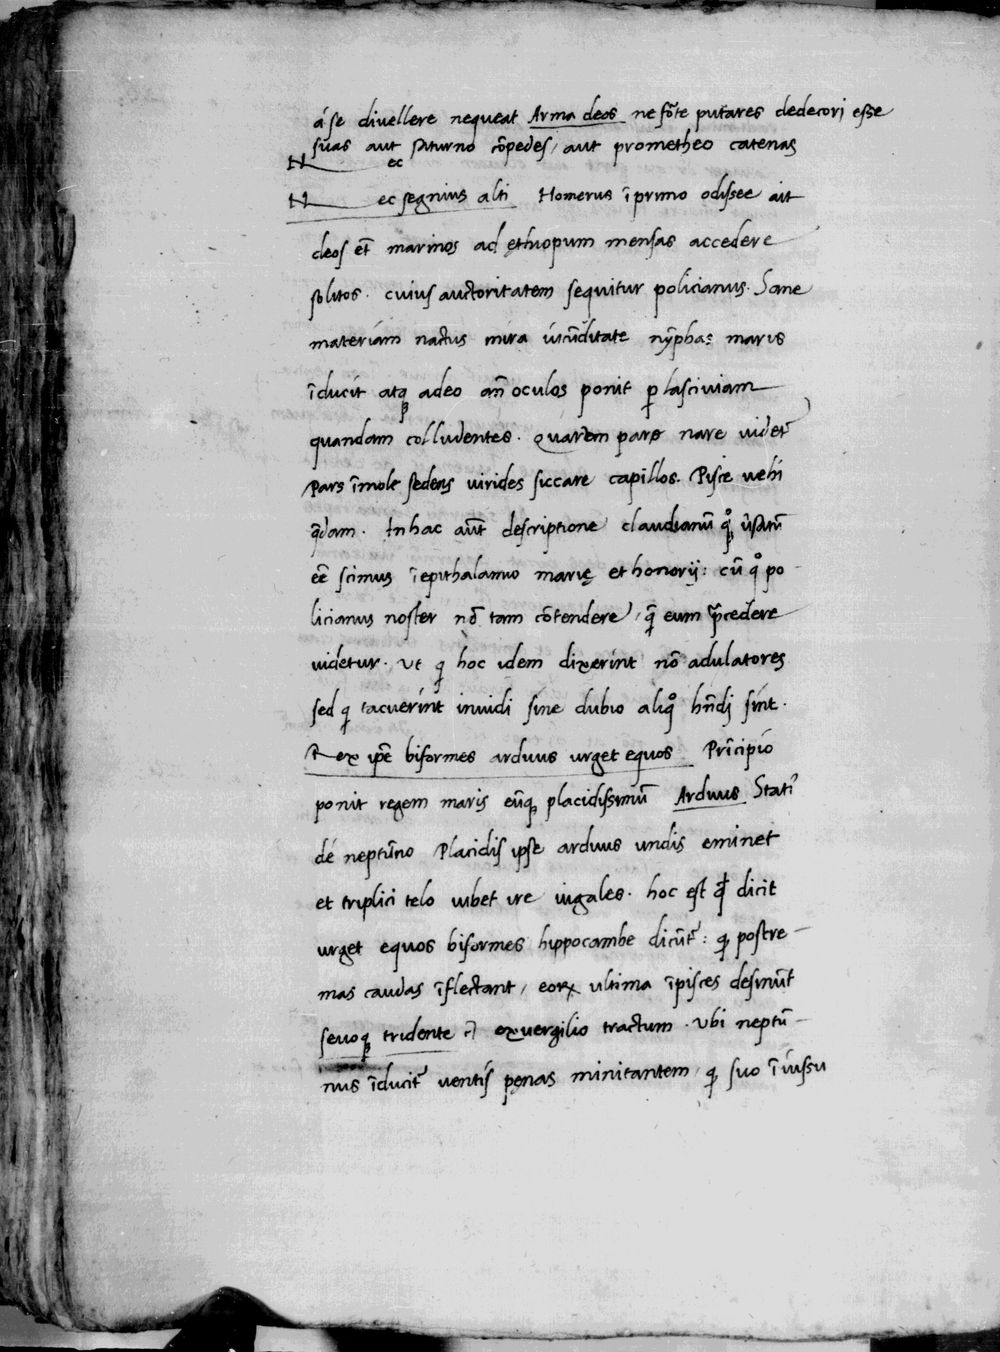 á se divellere nequeat Arma deos ne fōte putares dedecori esse
suas aut saturno cōpedes, aut prometheo catenas
N ec
N ec segnius alti Homerus ī primo odissee ait
deos et̄ marinos ad ęthiopum mensas accedere
solitos. cuius auctoritatem sequitur policianus. Sane
materiám nactus mira iúcūditate nȳphas maris
īducit atq adeo an̄ oculos ponit ꝑ lasciviam
quandam colludentes. Quarem pars nare videt᷑
Pars ī mole sedens virides siccare capillos. Pisce vehi
q̄dam. In hac aūt descriptione claudianū quoꝗ
eē scimus ī epithalamio marię et honorij: cū qͦ po
licianus noster nō tam cōtendere, q̄ eum p̄cedere
videtur. Ut ꝗ hoc idem dixerint nō adulatores
sed ꝗ tacuerint invidi sine dubio aliqͦ hn̄dj sint.
Rex ip̄e biformes arduus urget equos Prīcipio
ponit regem maris eūq placidissimū Arduus Stati᷒
dé neptūno Placidis ipse arduus undis eminet
et triplici telo iubet ire iugales. hoc est qđ dicit
urget equos biformes hippocambe dicūt᷑: ꝗ postre
mas caudas īflectant, eoꝝ ultima ī pisces desinūt
sevoq tridente ex vergilio tractum. Ubi neptū
nus īducit᷑ ventis pęnas minitantem, ꝗ suo ī iussu